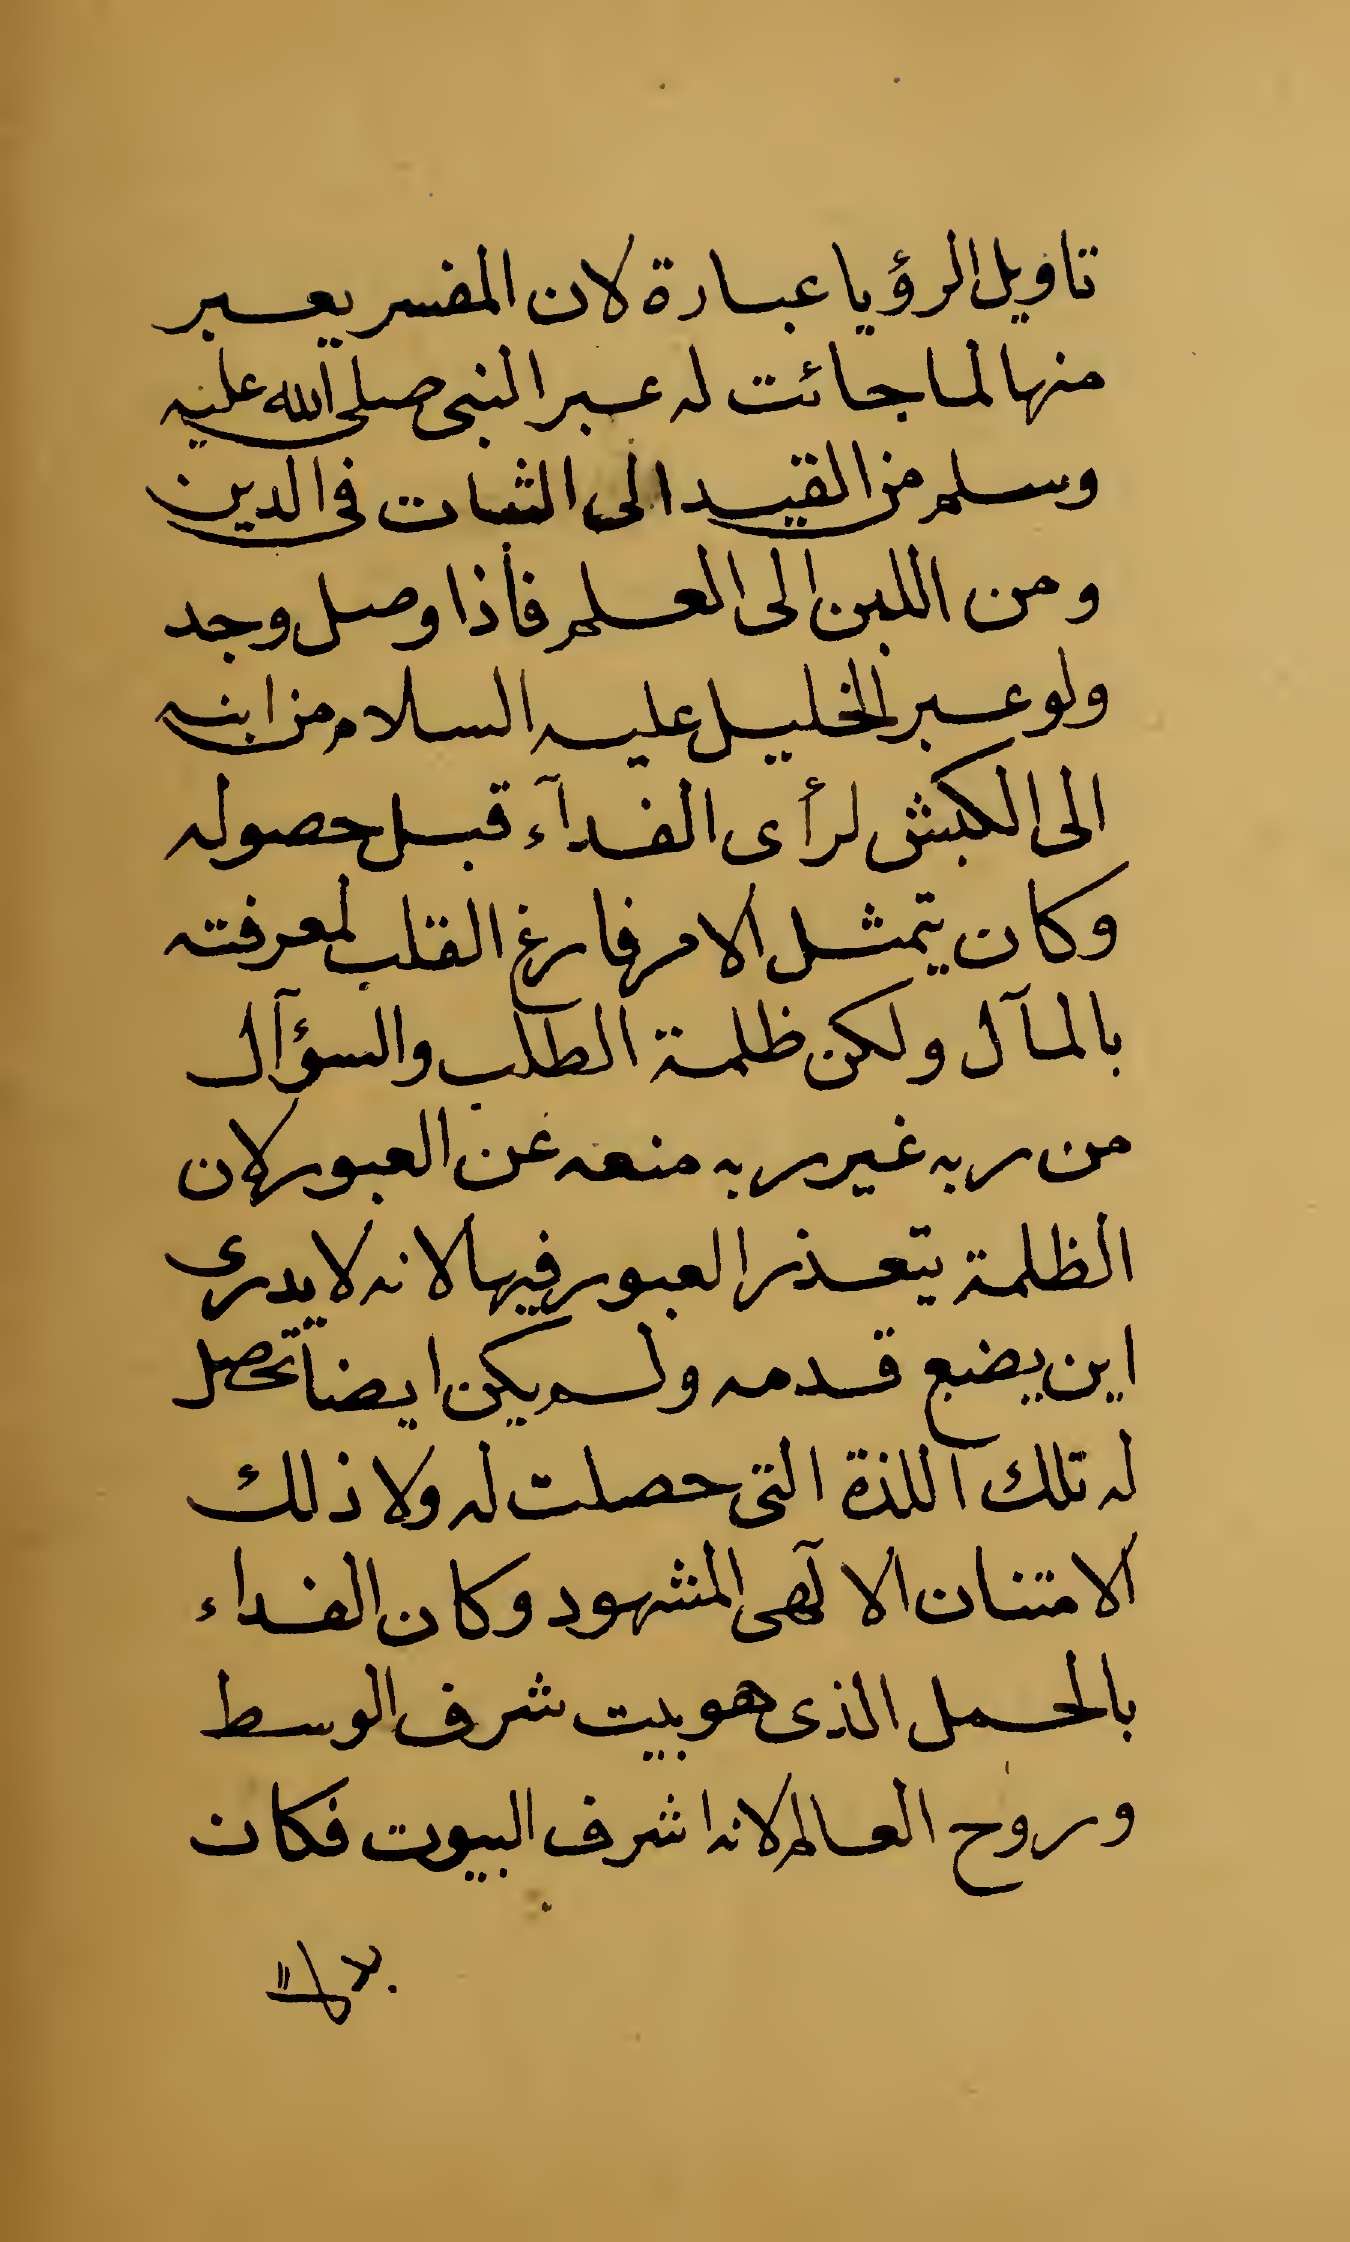 تاويل الرؤيا عبارة لان المفسر يعبر
منها لما جائت له عبر النبى صلى الله عليه
وسلم من القيد الى الثبات فى الدين
ومن اللبن الى العلم فأذا وصل وجد
ولو عبر الخليل عليه السلام من ابنه
الى الكبش لرأى الفدآء قبل حصوله
وكان يتمثل الامر فارغ القلب لمعرفته
بالمآل ولكن ظلمة الطلب والسؤآل
من ربه غير ربه منعه عن العبور لان
الظلمة يتعذر العبور فيها لانه لا يدرى
اين يضع قدمه ولم يكن ايضا تحصل
له تلك اللذة التى حصلت له ولا ذلك
الامتنان الالٓهى المشهود وكان الفداء
بالحمل الذى هو بيت شرف الوسط
وروح العالم لانه اشرف البيوت فكان